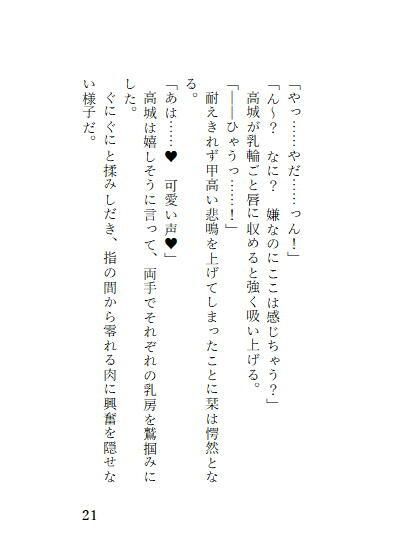 「やっ……やだ……っん！」
「ん～？　なに？　嫌なのにここは感じちゃう？」
　高城が乳輪ごと唇に収めると強く吸い上げる。
「――ひゃうっ……！」
　耐えきれず甲高い悲鳴を上げてしまったことに栞は愕然とな
る。
「あは……♥　可愛い声♥」
　高城は嬉しそうに言って、両手でそれぞれの乳房を鷲掴みに
した。
　ぐにぐにと揉みしだき、指の間から零れる肉に興奮を隠せな
い様子だ。
21